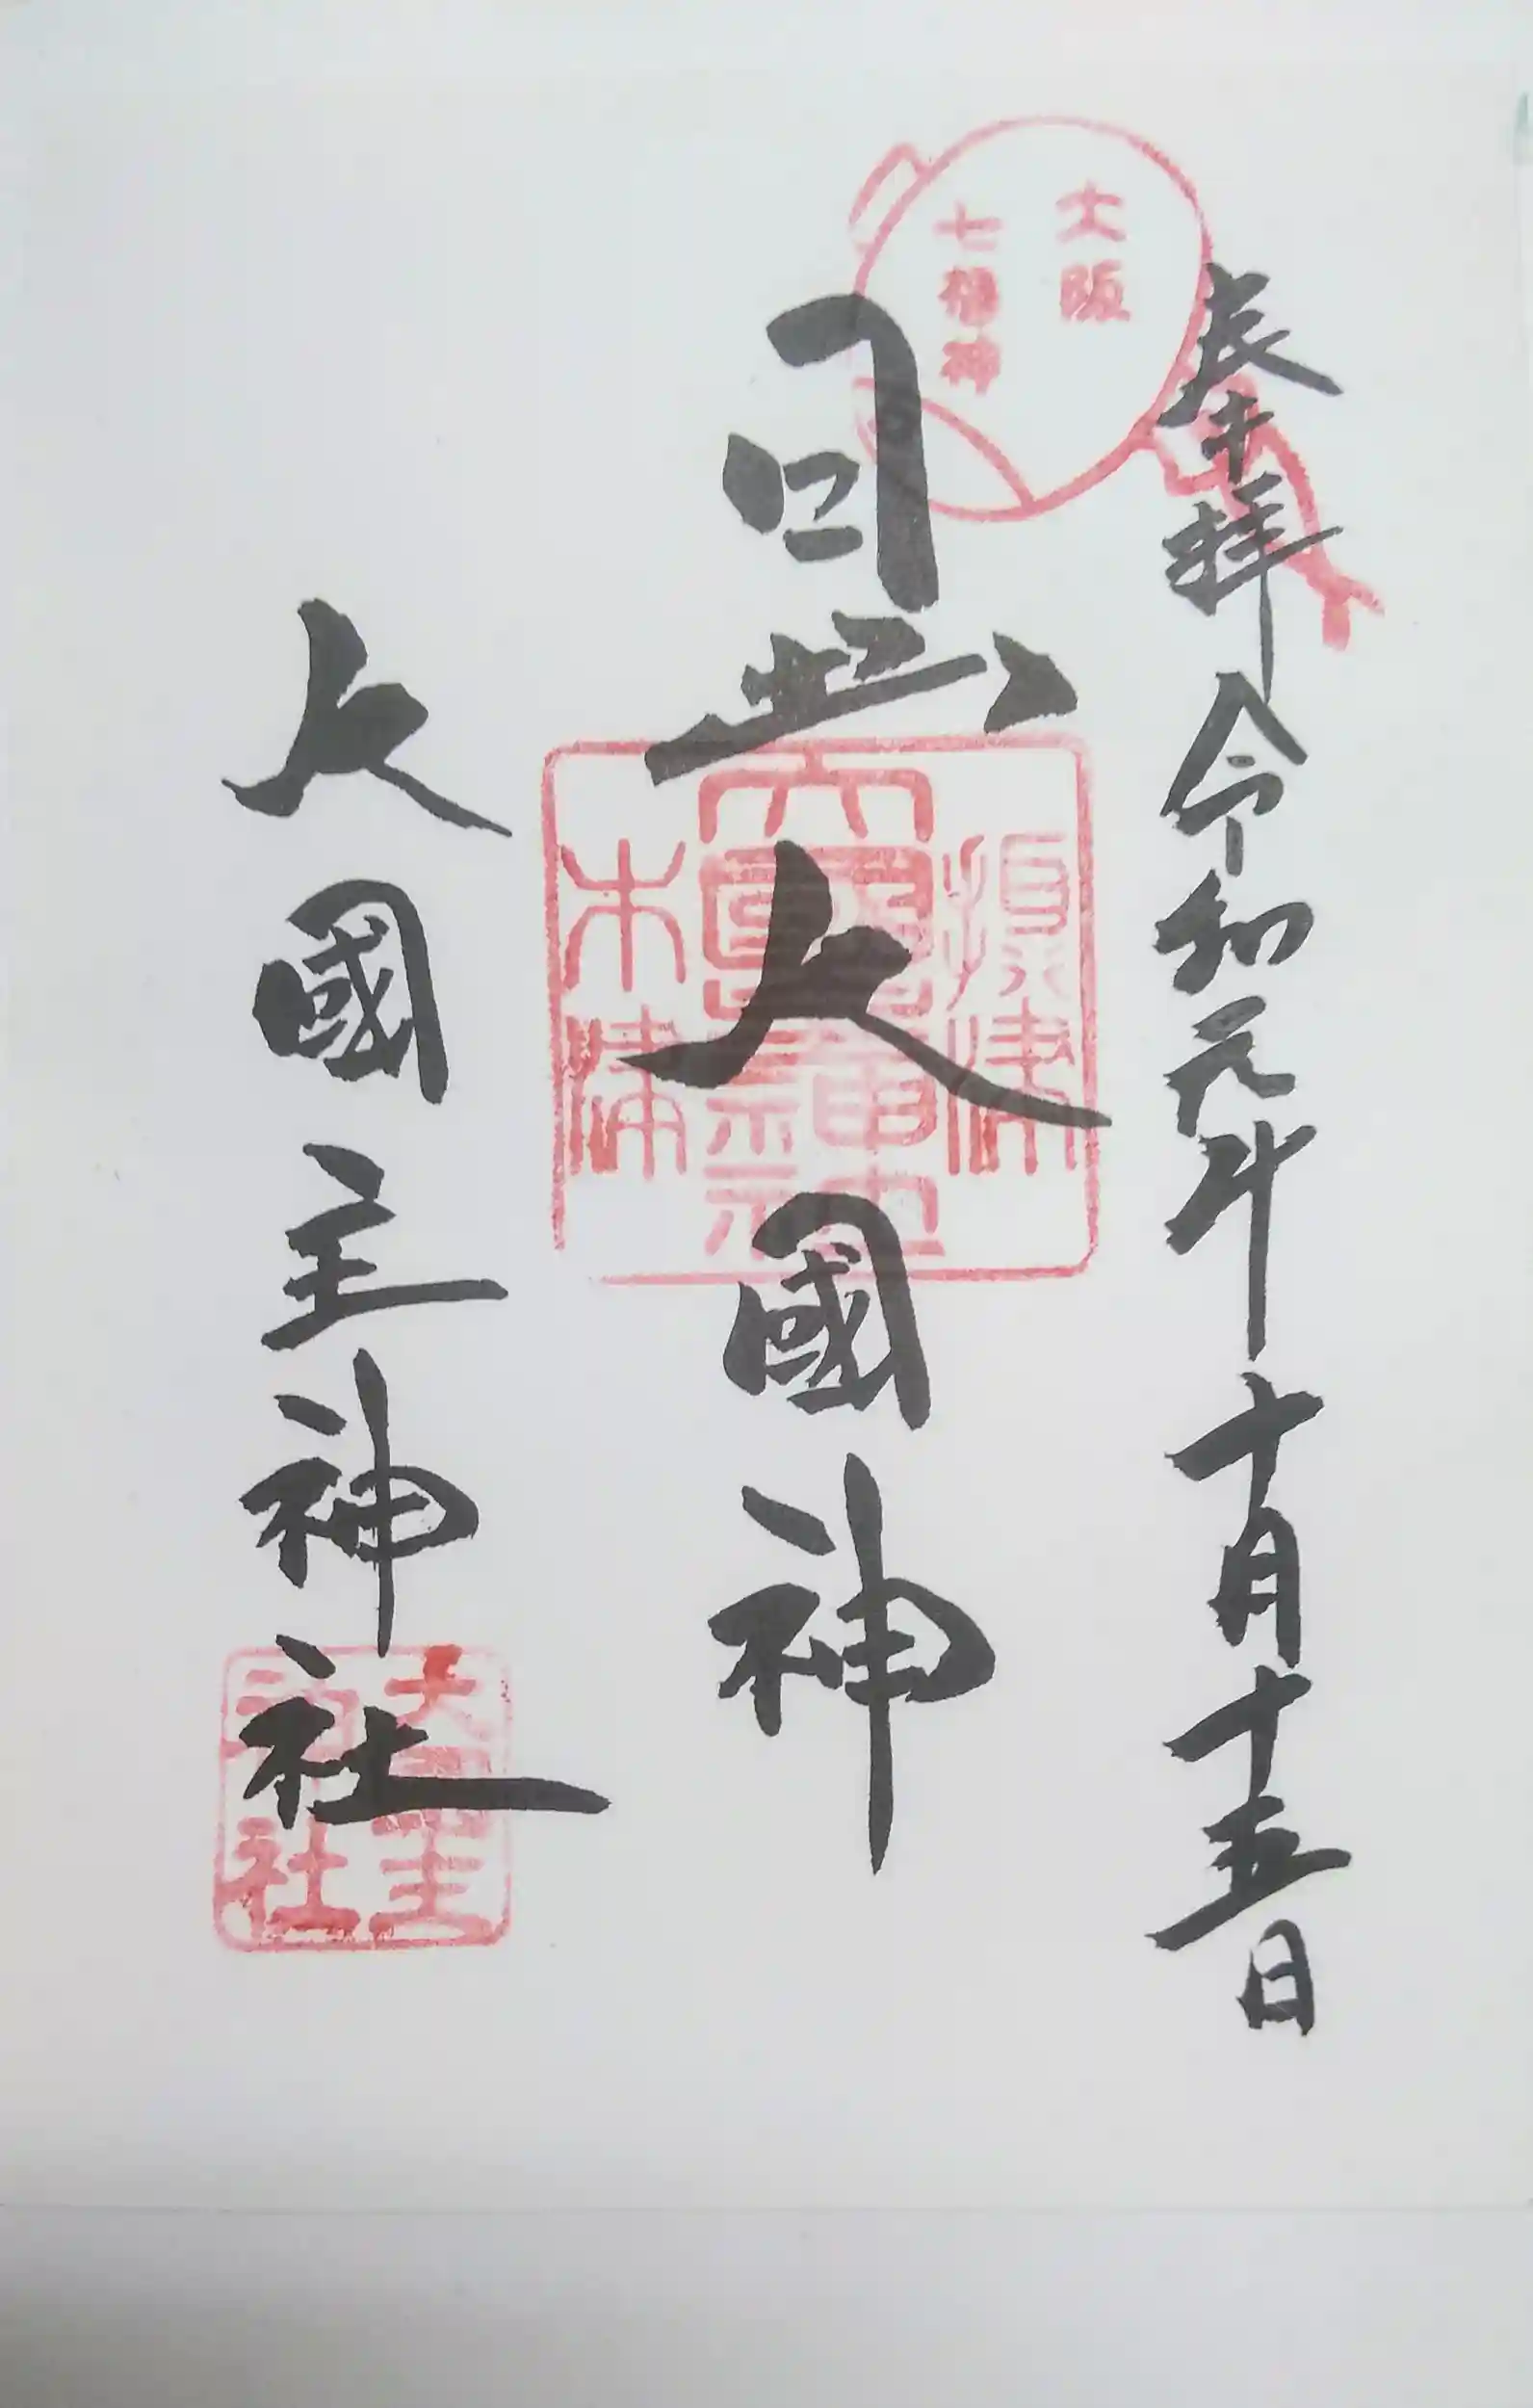 大阪
七福神
奉拝 令和元年十月十五日
日出大國神
木津
大國主神社
大國主神社